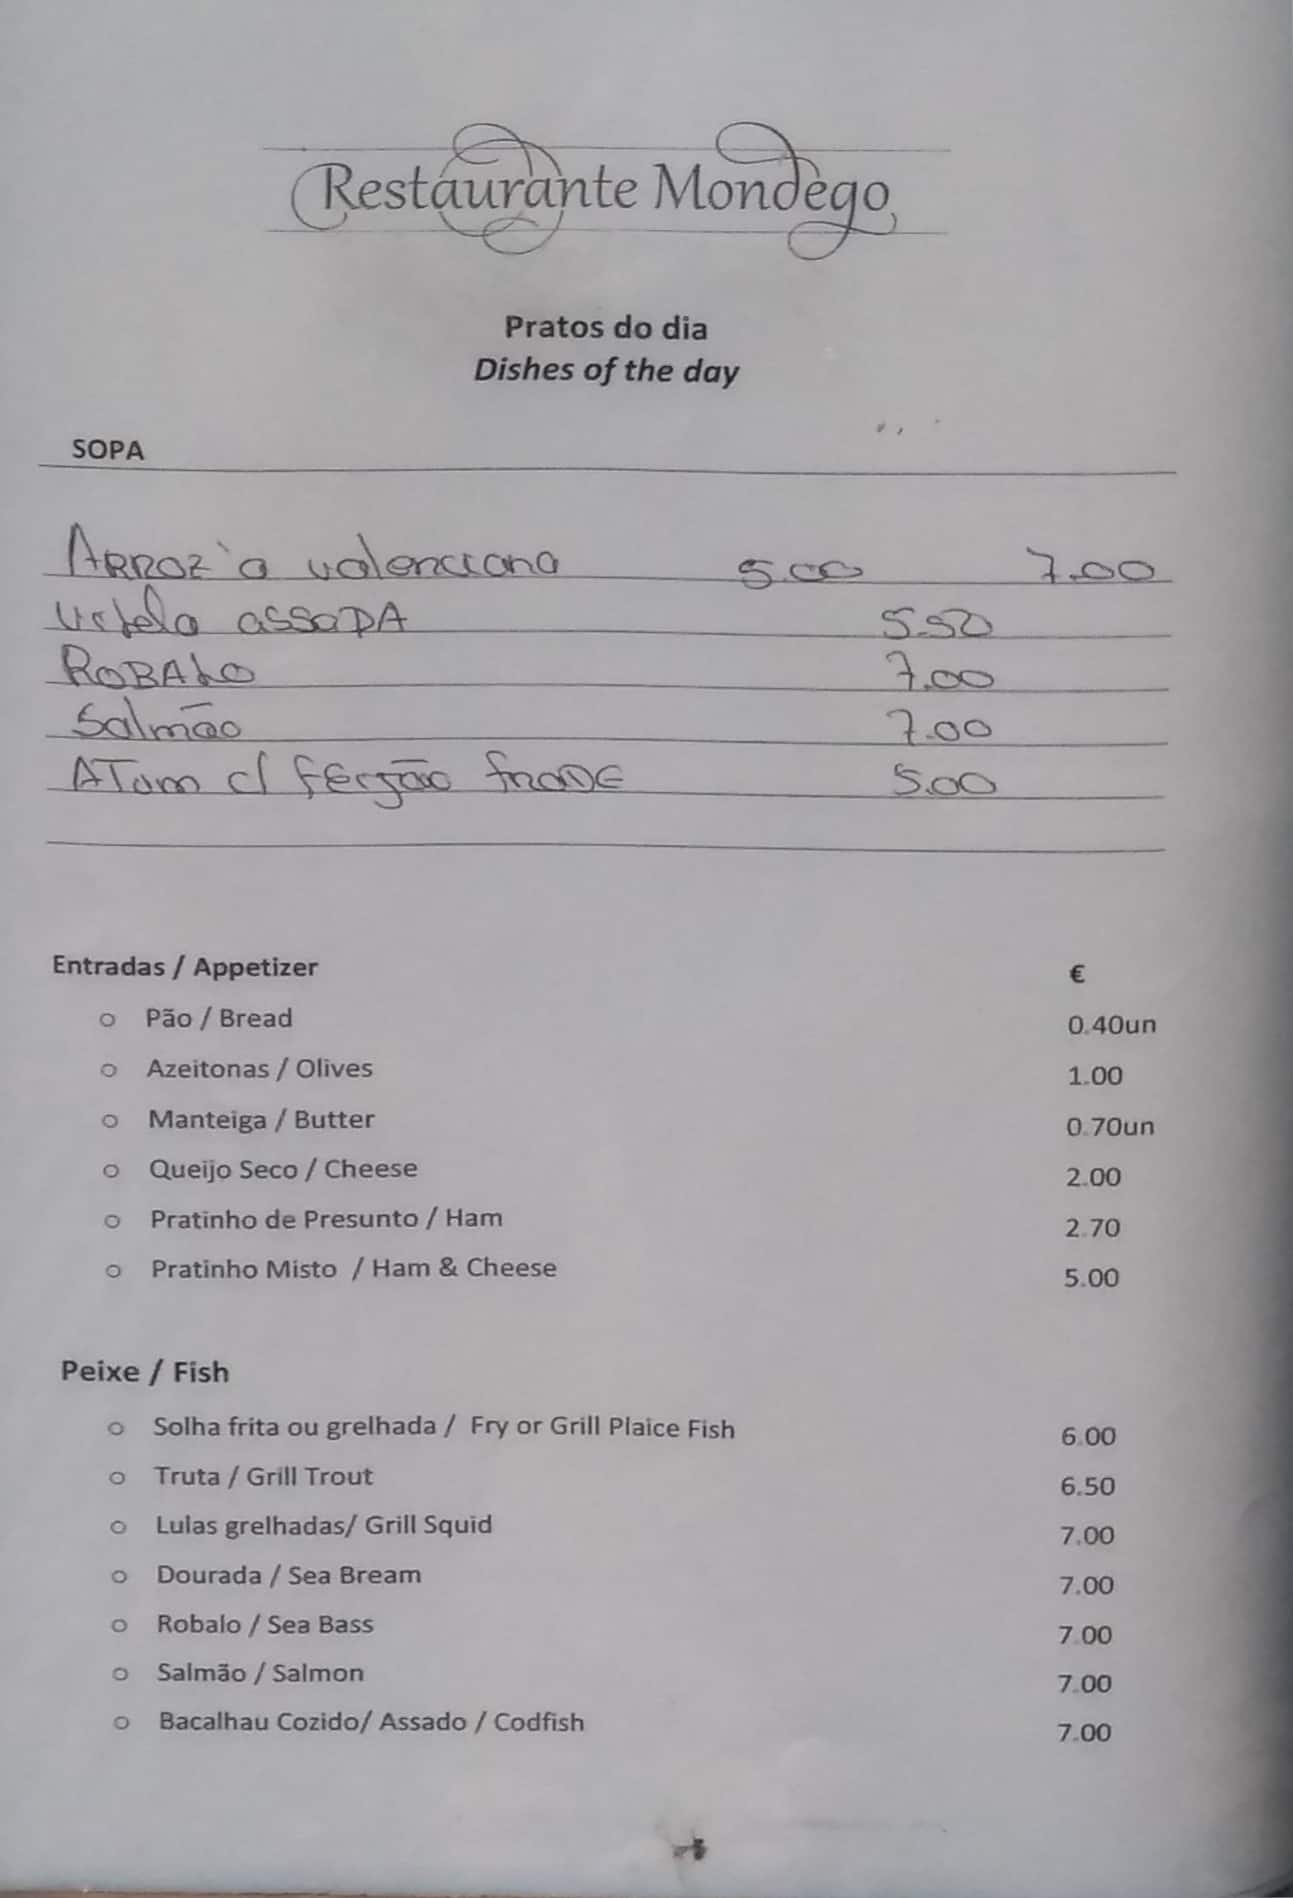 Restaurante Mondego
Pratos do dia
Dishes of the day
SOPA
ARROZ à valenciana 5.00 7.00
Vitela assaDA 5.50
ROBALO 7.00
Salmão 7.00
ATum c/ feijão fraDE 5.00
Entradas / Appetizer €
Pão / Bread 0.40un
Azeitonas / Olives 1.00
Manteiga / Butter 0.70un
Queijo Seco / Cheese 2.00
Pratinho de Presunto / Ham 2.70
Pratinho Misto / Ham & Cheese 5.00
Peixe / Fish
Solha frita ou grelhada / Fry or Grill Plaice Fish 6.00
Truta / Grill Trout 6.50
Lulas grelhadas/ Grill Squid 7.00
Dourada / Sea Bream 7.00
Robalo / Sea Bass 7.00
Salmão / Salmon 7.00
Bacalhau Cozido/ Assado / Codfish 7.00